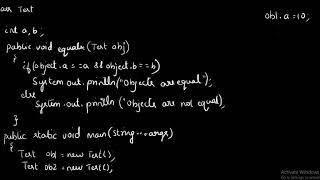 ass Test
obl.a = 10,
int a, b,
public void equals (Test obj)
{ if (object.a == a && object.b == b)
System.out.println ("Objects are equal");
else
System.out.println ("Objects are not equal),
}
public static void main (String... args)
{ Test obl = new Test(),
Test ob2 = new Test(),
Activate Windows
Go to Settings to activate